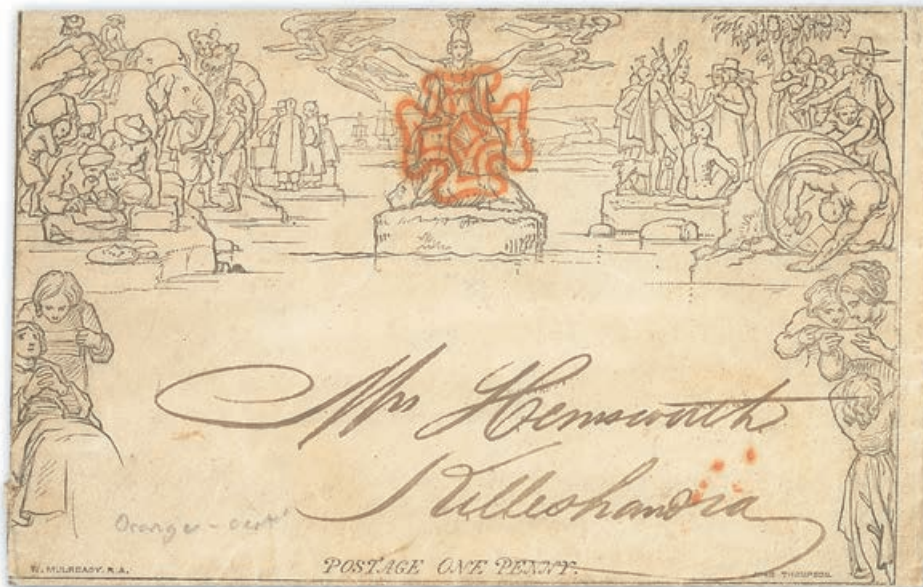 Mrs Hemsworth
Killeshandra
Orange -
W. MULREADY. R.A.
POSTAGE ONE PENNY.
JOHN THOMPSON